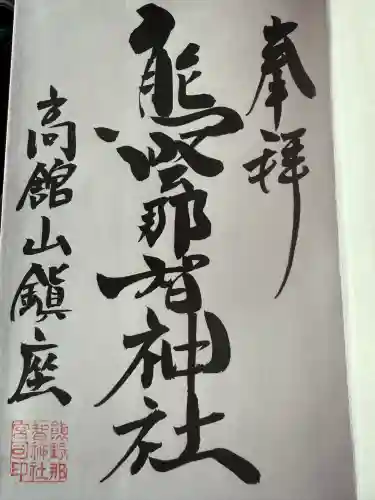 奉拝
熊野那智神社
高舘山鎮座
熊野那
智神社
宮司印